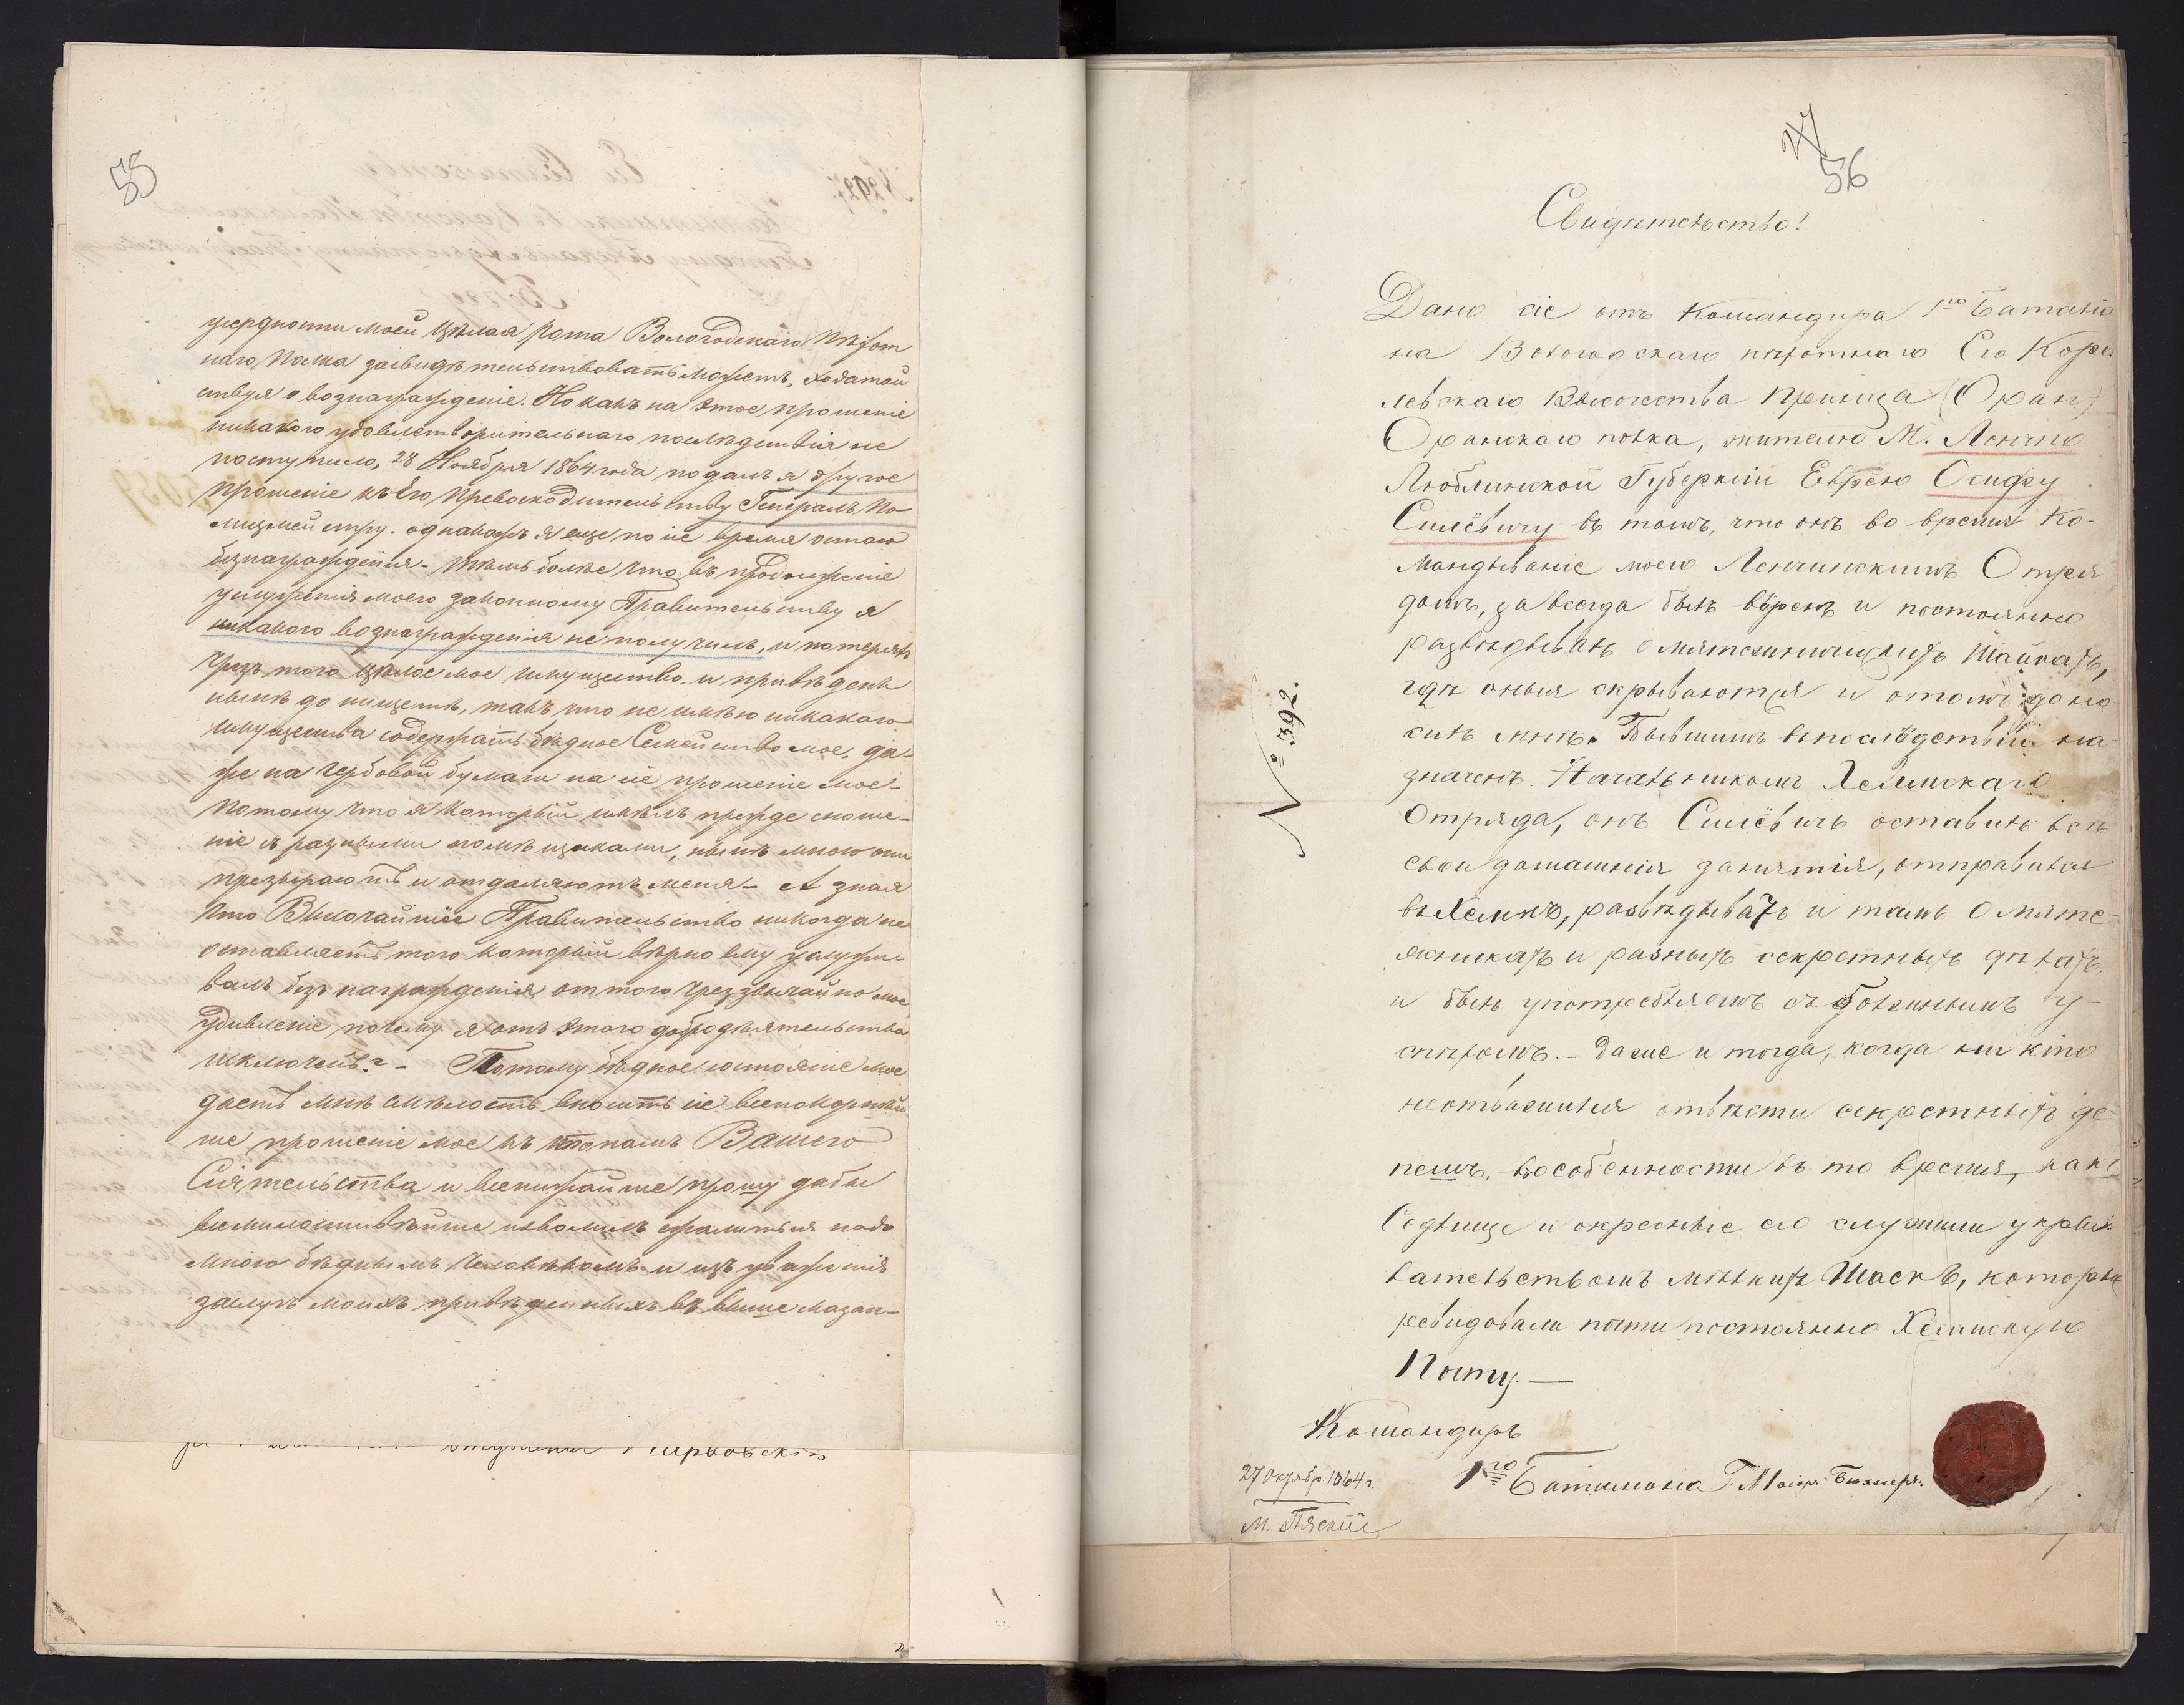 55
усердности моей цѣлая рота Вологодскаго пѣхот
наго Полка засвидѣтельствовать можетъ, ходатай
ствуя о вознагражденіе. Но какъ на этое прошеніе
никакого удовлетворительнаго послѣдствія не
поступило, 28 Ноября 1864 года подалъ я другое
прошеніе къ Его Превосходительству Генералъ По
лицмейстру. однакожъ я еще по сіе время остаю
безнагражденія - тѣмъ болѣе что въ продолженіе
услуженія моего законному Правительству я
никакого вознагражденія не получилъ, и потерявъ
чрезъ того цѣлое мое имущество и привѣденъ
нынѣ до нищеты, такъ что не имѣю никакого
имущества содержать бѣдное Семейство мое, да-
же на гербовой бумаги на сіе прошеніе мое -
потому что я который имѣлъ прежде сноше-
ніе съ разными помѣщиками, нынѣ мною они
презыраютъ и отдаляютъ меня - А зная
что Высочайшее Правительство никогда не
оставляетъ того который вѣрно ему услужи-
валъ безъ награжденія, оттого чрезвычайно мое
удивленіе почему я отъ этого добродѣятельства
исключенъ? - Потому бѣдное состояніе мое
даетъ мнѣ смѣлость вносить сіе всепокорнѣй
ше прошеніе мое къ стопамъ Вашего
Сіятельства и всенижайше прошу дабы
всемилостивѣйше изволилъ сжалиться надо
мною бѣднымъ человѣкомъ и изъ уваженія
заслугъ моихъ привѣденныхъ въ выше сказан-
Карповскій
2
27
56
Свидѣтельство!
Дано сіе отъ Командира 1го Баталіо
на Вологодскаго пѣхотнаго Его Коро
левскаго Высочества Принца (Оран)
Оранскаго полка, жителю М. Ленчно
Люблинской Губерніи Еврею Осифу
Силевичу въ томъ, что онъ во время Ко-
мандываніе моего Ленчинскимъ Отря
домъ, завсегда былъ вѣренъ и постоянно
развѣдывалъ о мятежническихъ Шайкахъ,
гдѣ оныя скрываются и отомъ доно
силъ мнѣ. Бывшимъ впослѣдствіи на-
значенъ Начальникомъ Хелмскаго
Отряда, онъ Силевичъ оставилъ всѣ
свои домашнія занятія, отправился
въ Хелмъ, развѣдывать и тамъ о мяте-
жникахъ и разныхъ секретныхъ дѣлахъ,
и былъ употребляемъ съ большимъ у-
спѣхомъ. - Даже и тогда, когда ни кто
неотважился отвѣсти секретныхъ де-
пешъ, в особенности въ то время, какъ
Седлище и окресные его служили укрыв
ательствомъ мѣлкихъ Шаекъ, которые
ревидовали почти постоянно Хелмскую
Почту. —
№ 392.
Командиръ
1го Баталіона Маіоръ
27 Октября 1864 г.
М. Пяски